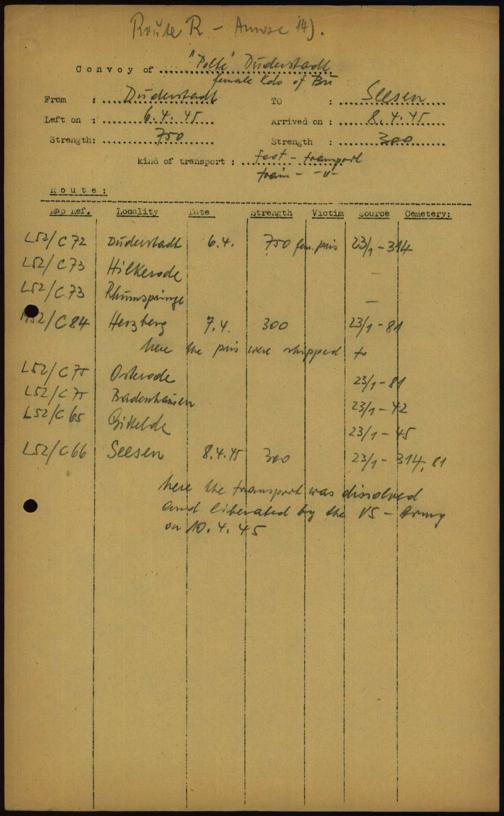 Route R - Annexe 14).
Convoy of "Polte" Duderstadt
female Kdo of Bu
From : Duderstadt TO : Seesen
Left on : 6.4.45 Arrived on : 8.4.45
Strength: 750 Strength : 300
kind of transport : foot - transport
train - -"-
Route:
Map Ref. Locality Date Strength Victim Source Cemetery:
L52/C72 Duderstadt 6.4. 750 fem. pris 23/1-314
L52/C73 Hilkerode -
L52/C73 Rhumspringe -
L52/C84 Herzberg 7.4. 300 23/1-81
here the pris were shipped
L52/C75 Osterode 23/1-81
L52/C75 Badenhausen 23/1-42
L52/C65 Gittelde 23/1-45
L52/C66 Seesen 8.4.45 300 23/1-314, 81
here the transport was dissolved
and liberated by the US-Army
on 10.4.45